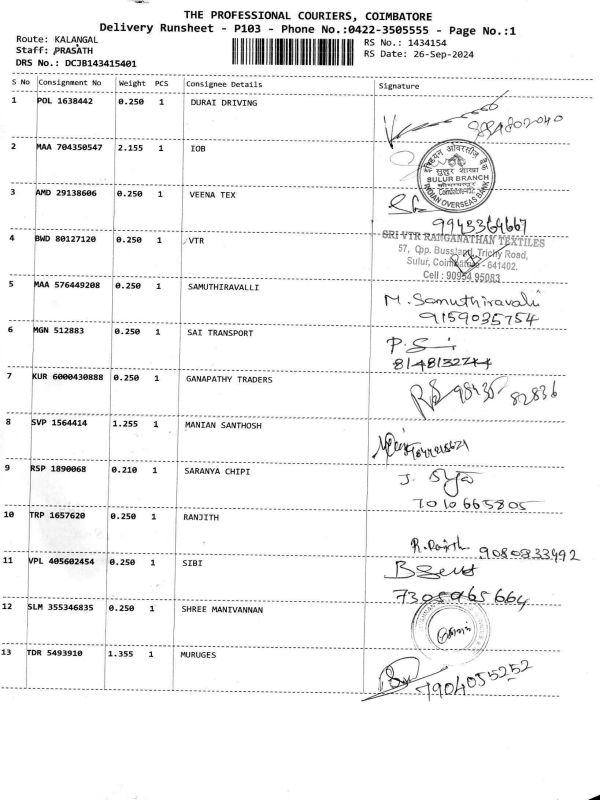 THE PROFESSIONAL COURIERS, COIMBATORE
Delivery Runsheet - P103 - Phone No.:0422-3505555 - Page No.:1
Route: KALANGAL
Staff: PRASATH
DRS No.: DCJB143415401
RS No.: 1434154
RS Date: 26-Sep-2024
S No Consignment No Weight PCS Consignee Details Signature
1 POL 1638442 0.250 1 DURAI DRIVING
2 MAA 704350547 2.155 1 IOB
इंडियन ओवरसीज़ बैंक
SULUR BRANCH
INDIAN OVERSEAS BANK
3 AMD 29138606 0.250 1 VEENA TEX
9943364667
4 BWD 80127120 0.250 1 VTR
SRI VTR RANGANATHAN TEXTILES
57, Opp. Busstand, Trichy Road,
Sulur, Coimbatore - 641402.
Cell : 90954 95083
5 MAA 576449208 0.250 1 SAMUTHIRAVALLI
M. Samuthiravalli
9159035754
6 MGN 512883 0.250 1 SAI TRANSPORT
7 KUR 6000430888 0.250 1 GANAPATHY TRADERS
98435 82836
8 SVP 1564414 1.255 1 MANIAN SANTHOSH
9 RSP 1890068 0.210 1 SARANYA CHIPI
7010665805
10 TRP 1657620 0.250 1 RANJITH
R. Ranjith 9080833492
11 VPL 405602454 0.250 1 SIBI
7305965664
12 SLM 355346835 0.250 1 SHREE MANIVANNAN
13 TDR 5493910 1.355 1 MURUGES
7904055252